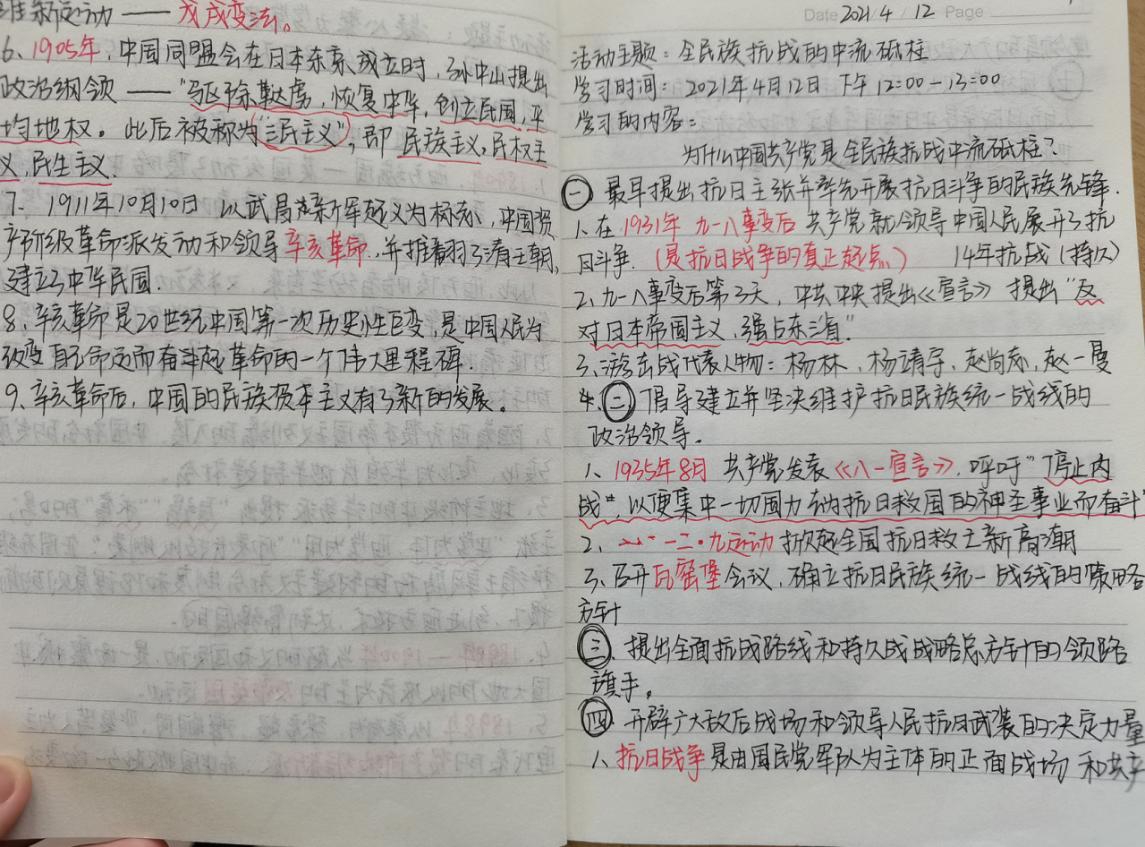 维新运动 —— 戊戌变法。
6、1905年，中国同盟会在日本东京成立时，孙中山提出
政治纲领 —— "驱除鞑虏，恢复中华，创立民国，平
均地权。此后被称为"三民主义"，即 民族主义，民权主
义，民生主义．
7、1911年10月10日 以武昌新军起义为标志，中国资
产阶级革命派发动和领导辛亥革命．并推翻了清王朝，
建立了中华民国．
8、辛亥革命是20世纪中国第一次历史性巨变，是中国人民为
改变自己命运而奋斗起革命的一个伟大里程碑．
9、辛亥革命后，中国的民族资本主义有了新的发展。
Date 2021 / 4 / 12 Page
活动主题：全民族抗战的中流砥柱
学习时间：2021年4月12日 下午12:00-13:00
学习的内容：
为什么中国共产党是全民族抗战中流砥柱？
㊀ 最早提出抗日主张并率先开展抗日斗争的民族先锋．
1、在1931年 九一八事变后 共产党就领导中国人民展开了抗
日斗争．（是抗日战争的真正起点） 14年抗战（持久）
2、九一八事变后第3天，中共中央提出《宣言》 提出"反
对日本帝国主义，强占东三省"
3、游击战代表人物：杨林．杨靖宇．赵尚志，赵一曼
4、㊁ 倡导建立并坚决维护抗日民族统一战线的
政治领导．
1、1935年8月 共产党发表《八一宣言》．呼吁"停止内
战"，以便集中一切国力去为抗日救国的神圣事业而奋斗"
2、一二·九运动 掀起全国抗日救亡新高潮
3、召开瓦窑堡会议，确立抗日民族统一战线的策略
方针
㊂、提出全面抗战路线和持久战战略总方针的领路
旗手。
㊃ 开辟广大敌后战场和领导人民抗日武装的决定力量
1、抗日战争是由国民党军队为主体的正面战场 和共产